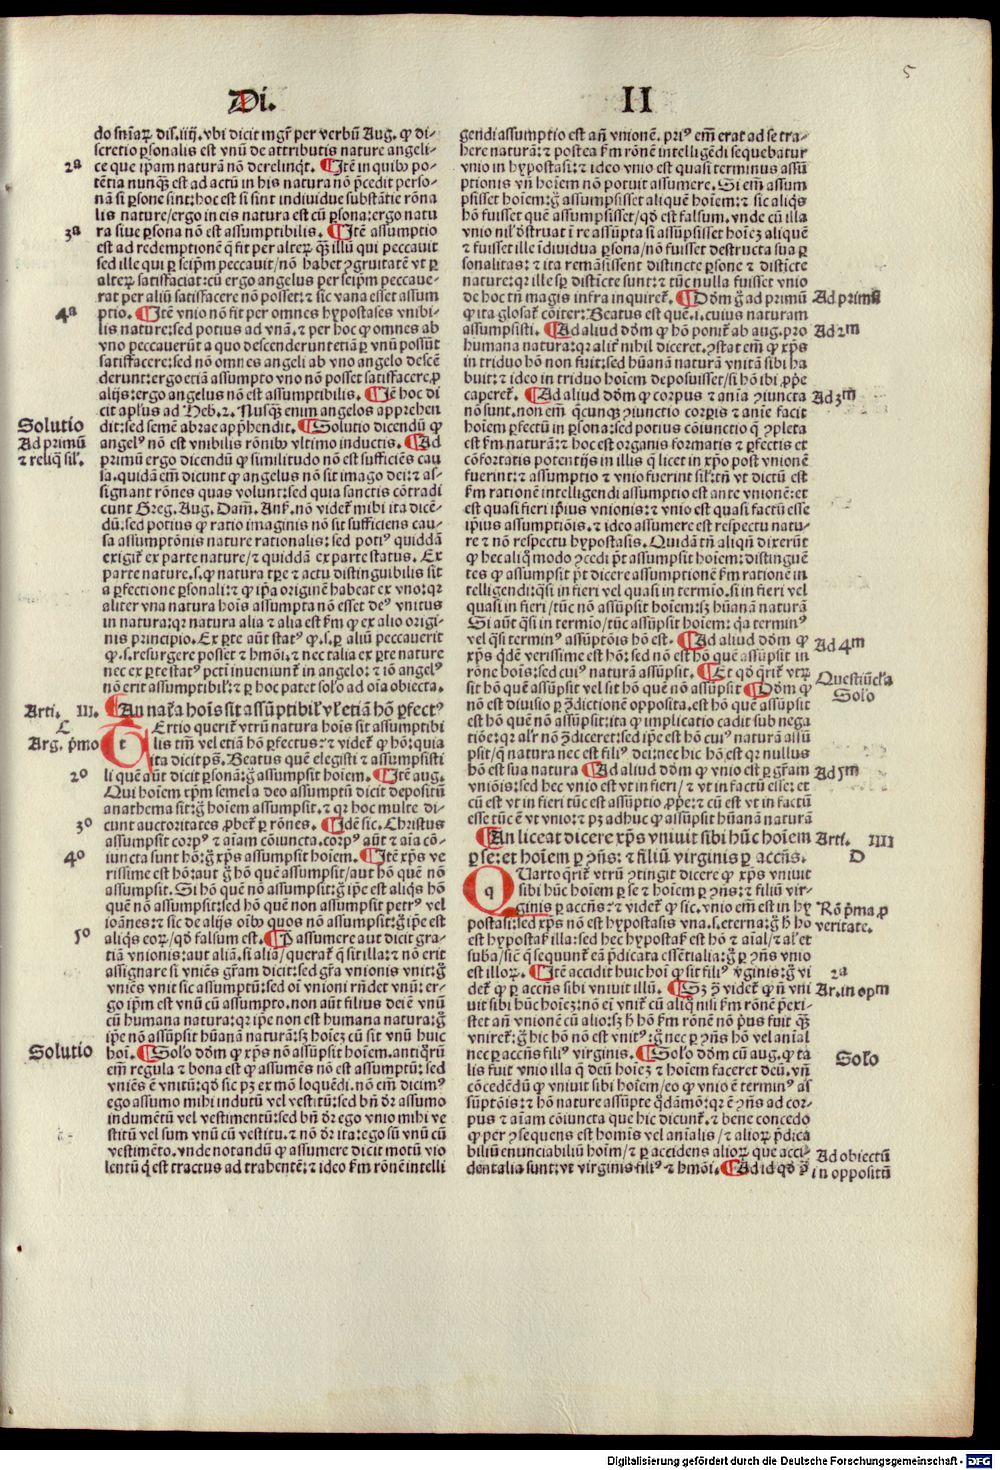 5
Di. II
do sniaꝝ dis.iiij. vbi dicit mgr̄ per verbū Aug. ꝙ di-
scretio ꝑsonalis est vnū de attributis nature angeli-
2ᵃ ce que ip̄am naturā nō derelinqt. ¶Itē in quibꝰ po-
tētia nunqꝫ est ad actū in his natura nō p̄cedit perso-
nā si ꝑsone sint: hoc est si sint indiuidue substātie rōna
lis nature/ergo in eis natura est cū ꝑsona: ergo natu
3ᵃ ra siue ꝑsona nō est assumptibilis. ¶Itē assumptio
est ad redemptionē q̄ fit per alterꝝ qꝫ illū qui peccauit
sed ille qui ꝑ seip̄m peccauit/nō habet ꝯgruitatē vt ꝑ
alterꝝ satisfaciat: cū ergo angelus per seip̄m peccaue-
rat per aliū satisfacere nō posset: ⁊ sic vana esset assum
4ᵃ ptio. ¶Itē vnio nō fit per omnes hypostases vnibi-
lis nature: sed potius ad vnā. ⁊ per hoc ꝙ omnes ab
vno peccauerūt a quo descenderunt etiā ꝑ vnū possūt
satisfacere: sed nō omnes angeli ab vno angelo descē
derunt: ergo etiā assumpto vno nō posset satisfacere ꝓ
alijs: ergo angelus nō est assumptibilis. ¶Itē hoc di
cit apl'us ad Heb.2. Nusqꝫ enim angelos apprehen
Solutio dit: sed semē abrae app̄hendit. ¶Solutio dicendū ꝙ
Ad primū angelꝰ nō est vnibilis rōnibꝰ vltimo inductis. ¶Ad
⁊ reliq̄ sil'. primū ergo dicendū ꝙ similitudo nō est sufficiēs cau
sa. quidā em̄ dicunt ꝙ angelus nō sit imago dei: ⁊ as-
signant rōnes quas volunt: sed quia sanctis cōtradi
cunt Greg. Aug. Dam̄. Ans. nō videt mihi ita dicē-
dū: sed potius ꝙ ratio imaginis nō sit sufficiens cau-
sa assumptōnis nature rationalis: sed potiꝰ quiddā
exigit ex parte nature/⁊ quiddā ex parte status. Ex
parte nature.s. ꝙ natura tp̄re ⁊ actu distinguibilis sit
a perfectione ꝑsonali: ⁊ ꝙ ip̄a originē habeat ex vno: qr
aliter vna natura hoīs assumpta nō esset deꝰ vnitus
in natura: qr natura alia ⁊ alia est s̄m ꝙ ex alio origi-
nis principio. Ex ꝑte aūt statꝰ ꝙ.s. ꝑ aliū peccauerit
ꝙ.s. resurgere posset ⁊ hmōi. ⁊ nec talia ex ꝑte nature
nec ex ꝑte statꝰ pctī inueniunt in angelo: ⁊ iō angelꝰ
nō erit assumptibil': ⁊ ꝑ hoc patet sol'o ad oīa obiecta.
Arti. III. ¶An nat'a hoīs sit assūptibil' vl' etiā hō ꝑfectꝰ
C Tertio querit vtrū natura hoīs sit assumptibi
Arg. p̄mo lis tm̄ vel etiā hō perfectus: ⁊ videt ꝙ hō: quia
ita dicit ps̄. Beatus quē elegisti ⁊ assumpsisti
2º li quē aūt dicit ꝑsonā: g̊ assumpsit hoīem. ¶Itē aug.
Qui hoīem tp̄m semel a deo assumptū dicit depositū
anathema sit: g̊ hoīem assumpsit. ⁊ qr hoc multe di-
3º cunt auctoritates ꝓbet ꝑ rōnes. ¶Idē sic. Christus
assumpsit corpꝰ ⁊ aīam cōiuncta. corpꝰ aūt ⁊ aīa cō-
4º iuncta sunt hō: g̊ xp̄s assumpsit hoīem. ¶Itē xp̄s ve
rissime est hō: aut g̊ hō quē assumpsit/aut hō quē nō
assumpsit. Si hō quē nō assumpsit: g̊ ip̄e est aliqs hō
quē nō assumpsit: sed hō quē non assumpsit petrꝰ vel
ioānes: ⁊ sic de alijs oībꝰ quos nō assumpsit: g̊ ip̄e est
5º aliqs eoꝝ/qd̄ falsum est. ¶Itē assumere aut dicit gra-
tiā vnionis: aut aliā. si aliā/querat q̄ sit illa: ⁊ nō erit
assignare si vniēs gr̄am dicit: sed gr̄a vnionis vnit: g̊
vniēs vnit sic assumptū: sed oī vnioni rn̄det vnū: er-
go ip̄m est vnū cū assumpto. non aūt filius dei ē vnū
cū humana natura: qr ip̄e non est humana natura: g̊
ip̄e nō assūpsit hūanā naturā: sꝫ hoīeꝫ cū sit vnū huic
Solutio hoī. ¶Sol'o dōm ꝙ xp̄s nō assūpsit hoīem. antiq̄rū
em̄ regula ⁊ bona est ꝙ assumēs nō est assumptū: sed
vniēs ē vnitū: qd̄ sic pꝫ ex mō loquēdi. nō em̄ dicimꝰ
ego assumo mihi indutū vel vestitū: sed bn̄ dr̄ assumo
indumētū vel vestimentū: sed bn̄ dr̄ ego vnio mihi ve
stitū vel sum vnū cū vestitu. ⁊ nō dr̄ ita: ego sū vnū cū
vestimēto. vnde notandū ꝙ assumere dicit motū vio
lentū q̄ est tractus ad trahentē: ⁊ ideo s̄m rōnē intelli
gendi assumptio est an̄ vnionē. priꝰ em̄ erat ad se tra-
here naturā: ⁊ postea s̄m rōnē intelligēdi sequebatur
vnio in hypostasi: ⁊ ideo vnio est quasi terminus assū
ptionis vn̄ hoīem nō potuit assumere. Si em̄ assum
psisset hoīem: g̊ assumpsisset aliquē hoīem: ⁊ sic aliqs
hō fuisset quē assumpsisset/qd̄ est falsum. vnde cū illa
vnio nil' dꝰtruat ī re assūpta si assūpsisset hoīeꝫ aliquē
⁊ fuisset ille īdiuidua ꝑsona/nō fuisset destructa sua ꝑ
sonalitas: ⁊ ita remāsissent distincte ꝑsone ⁊ disticte
nature: qr ille sꝑ disticte sunt: ⁊ tūc nulla fuisset vnio
de hoc tn̄ magis infra inquiret. ¶Dōm g̊ ad primū Ad primū
ꝙ ita glosat cōiter: Beatus est quē.i. cuius naturam
assumpsisti. ¶Ad aliud dōm ꝙ hō ponit ab aug. pro Ad 2ᵐ
humana natura: qr alit nihil diceret. ꝯstat em̄ ꝙ xp̄s
in triduo hō non fuit: sed hūanā naturā vnitā sibi ha
buit: ⁊ ideo in triduo hoīem deposuisset/si hō ibi ꝓp̄e
caperet. ¶Ad aliud dōm ꝙ corpus ⁊ anīa ꝯiuncta Ad 3ᵐ
nō sunt. non em̄ q̄cunqꝫ ꝯiunctio corꝑis ⁊ anīe facit
hoīem ꝑfectū in ꝑsona: sed potius cōiunctio q̄ ꝯpleta
est s̄m naturā: ⁊ hoc est organis formatis ⁊ ꝑfectis et
cōfortatis potentijs in illis q̄ licet in xp̄o post vnionē
fuerint: ⁊ assumptio ⁊ vnio fuerint sil': tn̄ vt dictū est
s̄m rationē intelligendi assumptio est ante vnionē: et
est quasi fieri ip̄ius vnionis: ⁊ vnio est quasi factū esse
ip̄ius assumptiōis. ⁊ ideo assumere est respectu natu-
re ⁊ nō respectu hypostasis. Quidā tn̄ aliqn̄ dixerūt
ꝙ hec aliq̊ modo ꝯcedi pt̄ assumpsit hoīem: distinguē
tes ꝙ assumpsit pt̄ dicere assumptionē s̄m rationē in
telligendi: q̄si in fieri vel quasi in termio. si in fieri vel
quasi in fieri/tūc nō assūpsit hoīem: sꝫ hūanā naturā
Si aūt q̄si in termīo/tūc assūpsit hoīem: q̄a terminꝰ
vel q̄si terminꝰ assūptōis hō est. ¶Ad aliud dōm ꝙ Ad 4ᵐ
xp̄s q̄dē verissime est hō: sed nō est hō quē assūpsit in
rōne hoīs: sed cuiꝰ naturā assūpsit. ¶Et qd̄ q̄rit vtꝝ Questiūcl'a
sit hō quē assūpsit vel sit hō quē nō assūpsit ¶Dōm ꝙ Sol'o
nō est diuisio ꝑ ꝯdictionē opposita. est hō quē assūpsit
est hō quē nō assūpsit: ita ꝙ implicatio cadit sub nega
tiōe: qr al'r nō ꝯdiceret: sed ip̄e est hō cuiꝰ naturā assū
psit/q̄ natura nec est filiꝰ dei: nec hic hō est qr nullus
hō est sua natura ¶Ad aliud dōm ꝙ vnio est ꝑ gr̄am Ad 5ᵐ
vniōis: sed hec vnio est vt in fieri/⁊ vt in factū esse: et
cū est vt in fieri tūc est assūptio ꝓp̄e: ⁊ cū est vt in factū
esse tūc ē vt vnio: ⁊ pꝫ adhuc ꝙ assūpsit hūanā naturā
¶An liceat dicere xp̄s vniuit sibi hūc hoīem Arti. IIII
ꝑ se: et hoīem ꝑ ꝯn̄s: ⁊ filiū virginis ꝑ accn̄s. D
Quarto q̄rit vtrū ꝯtingit dicere ꝙ xp̄s vniuit
sibi hūc hoīem ꝑ se ⁊ hoīem ꝑ ꝯn̄s: ⁊ filiū vir-
ginis ꝑ accn̄s: ⁊ videt ꝙ sic. vnio em̄ est in hy Rō p̄ma ꝓ
postasi: sed xp̄s nō est hypostasis vna.s. eterna: g̊ h̄ ho veritate.
est hypostasˀ illa: sed hec hypostasˀ est hō ⁊ aīal/⁊ al'et
suba/sic q̄ sequunt eā p̄dicata essētialia: g̊ ꝑ ꝯn̄s vnio
est illoꝝ. ¶Itē accidit huic hoī ꝙ sit filiꝰ v̄ginis: g̊ vi 2ᵃ
det ꝙ ꝑ accn̄s sibi vniuit illū. ¶Sꝫ ꝯ videt ꝙ n̄ vni Ar. in opᵐ
uit sibi hūc hoīeꝫ: nō eī vnit cū aliq̊ nisi s̄m rōnē p̄exi-
stet an̄ vnionē cū alio: sꝫ h̄ hō s̄m rōnē nō pꝰ fuit qꝫ
vniret: g̊ hic hō nō est vnitꝰ: g̊ nec ꝑ ꝯn̄s hō vel anīal
nec ꝑ accn̄s filiꝰ virginis. ¶Sol'o dōm cū aug. ꝙ ta Sol'o
lis fuit vnio illa q̄ deū hoīeꝫ ⁊ hoīem faceret deū. vn̄
cōcedēdū ꝙ vniuit sibi hoīem/eo ꝙ vnio ē terminꝰ as
sūptōis: ⁊ hō nature assūpte q̄dāmō: qr ē ꝯn̄s ad cor-
pus ⁊ aīam cōiuncta que hic dicunt. ⁊ bene concedo
ꝙ per ꝯsequens est hoīmis vel anīalis/⁊ alioꝝ p̄dica
biliū enunciabiliū hoīm/⁊ ꝑ accidens alioꝝ que acci- Ad obiectū
dentalia sunt: vt virginis filiꝰ ⁊ hmōi. ¶Ad id qd̄ ꝯ in oppositū
Digitalisierung gefördert durch die Deutsche Forschungsgemeinschaft - DFG